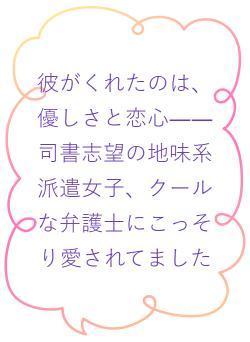 彼がくれたのは、
優しさと恋心――
司書志望の地味系
派遣女子、クール
な弁護士にこっそ
り愛されてました